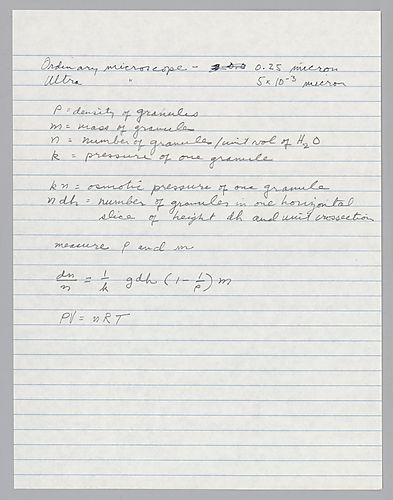 Ordinary microscope - 0.25 micron
Ultra " 5 × 10⁻³ micron
ρ = density of granules
m = mass of granule
n = number of granules/unit vol of H₂O
k = pressure of one granule
kn = osmotic pressure of one granule
ndh = number of granules in one horizontal
slice of height dh and unit crossection
measure ρ and m
dn/n = 1/k gdh (1 - 1/ρ) m
PV = nRT